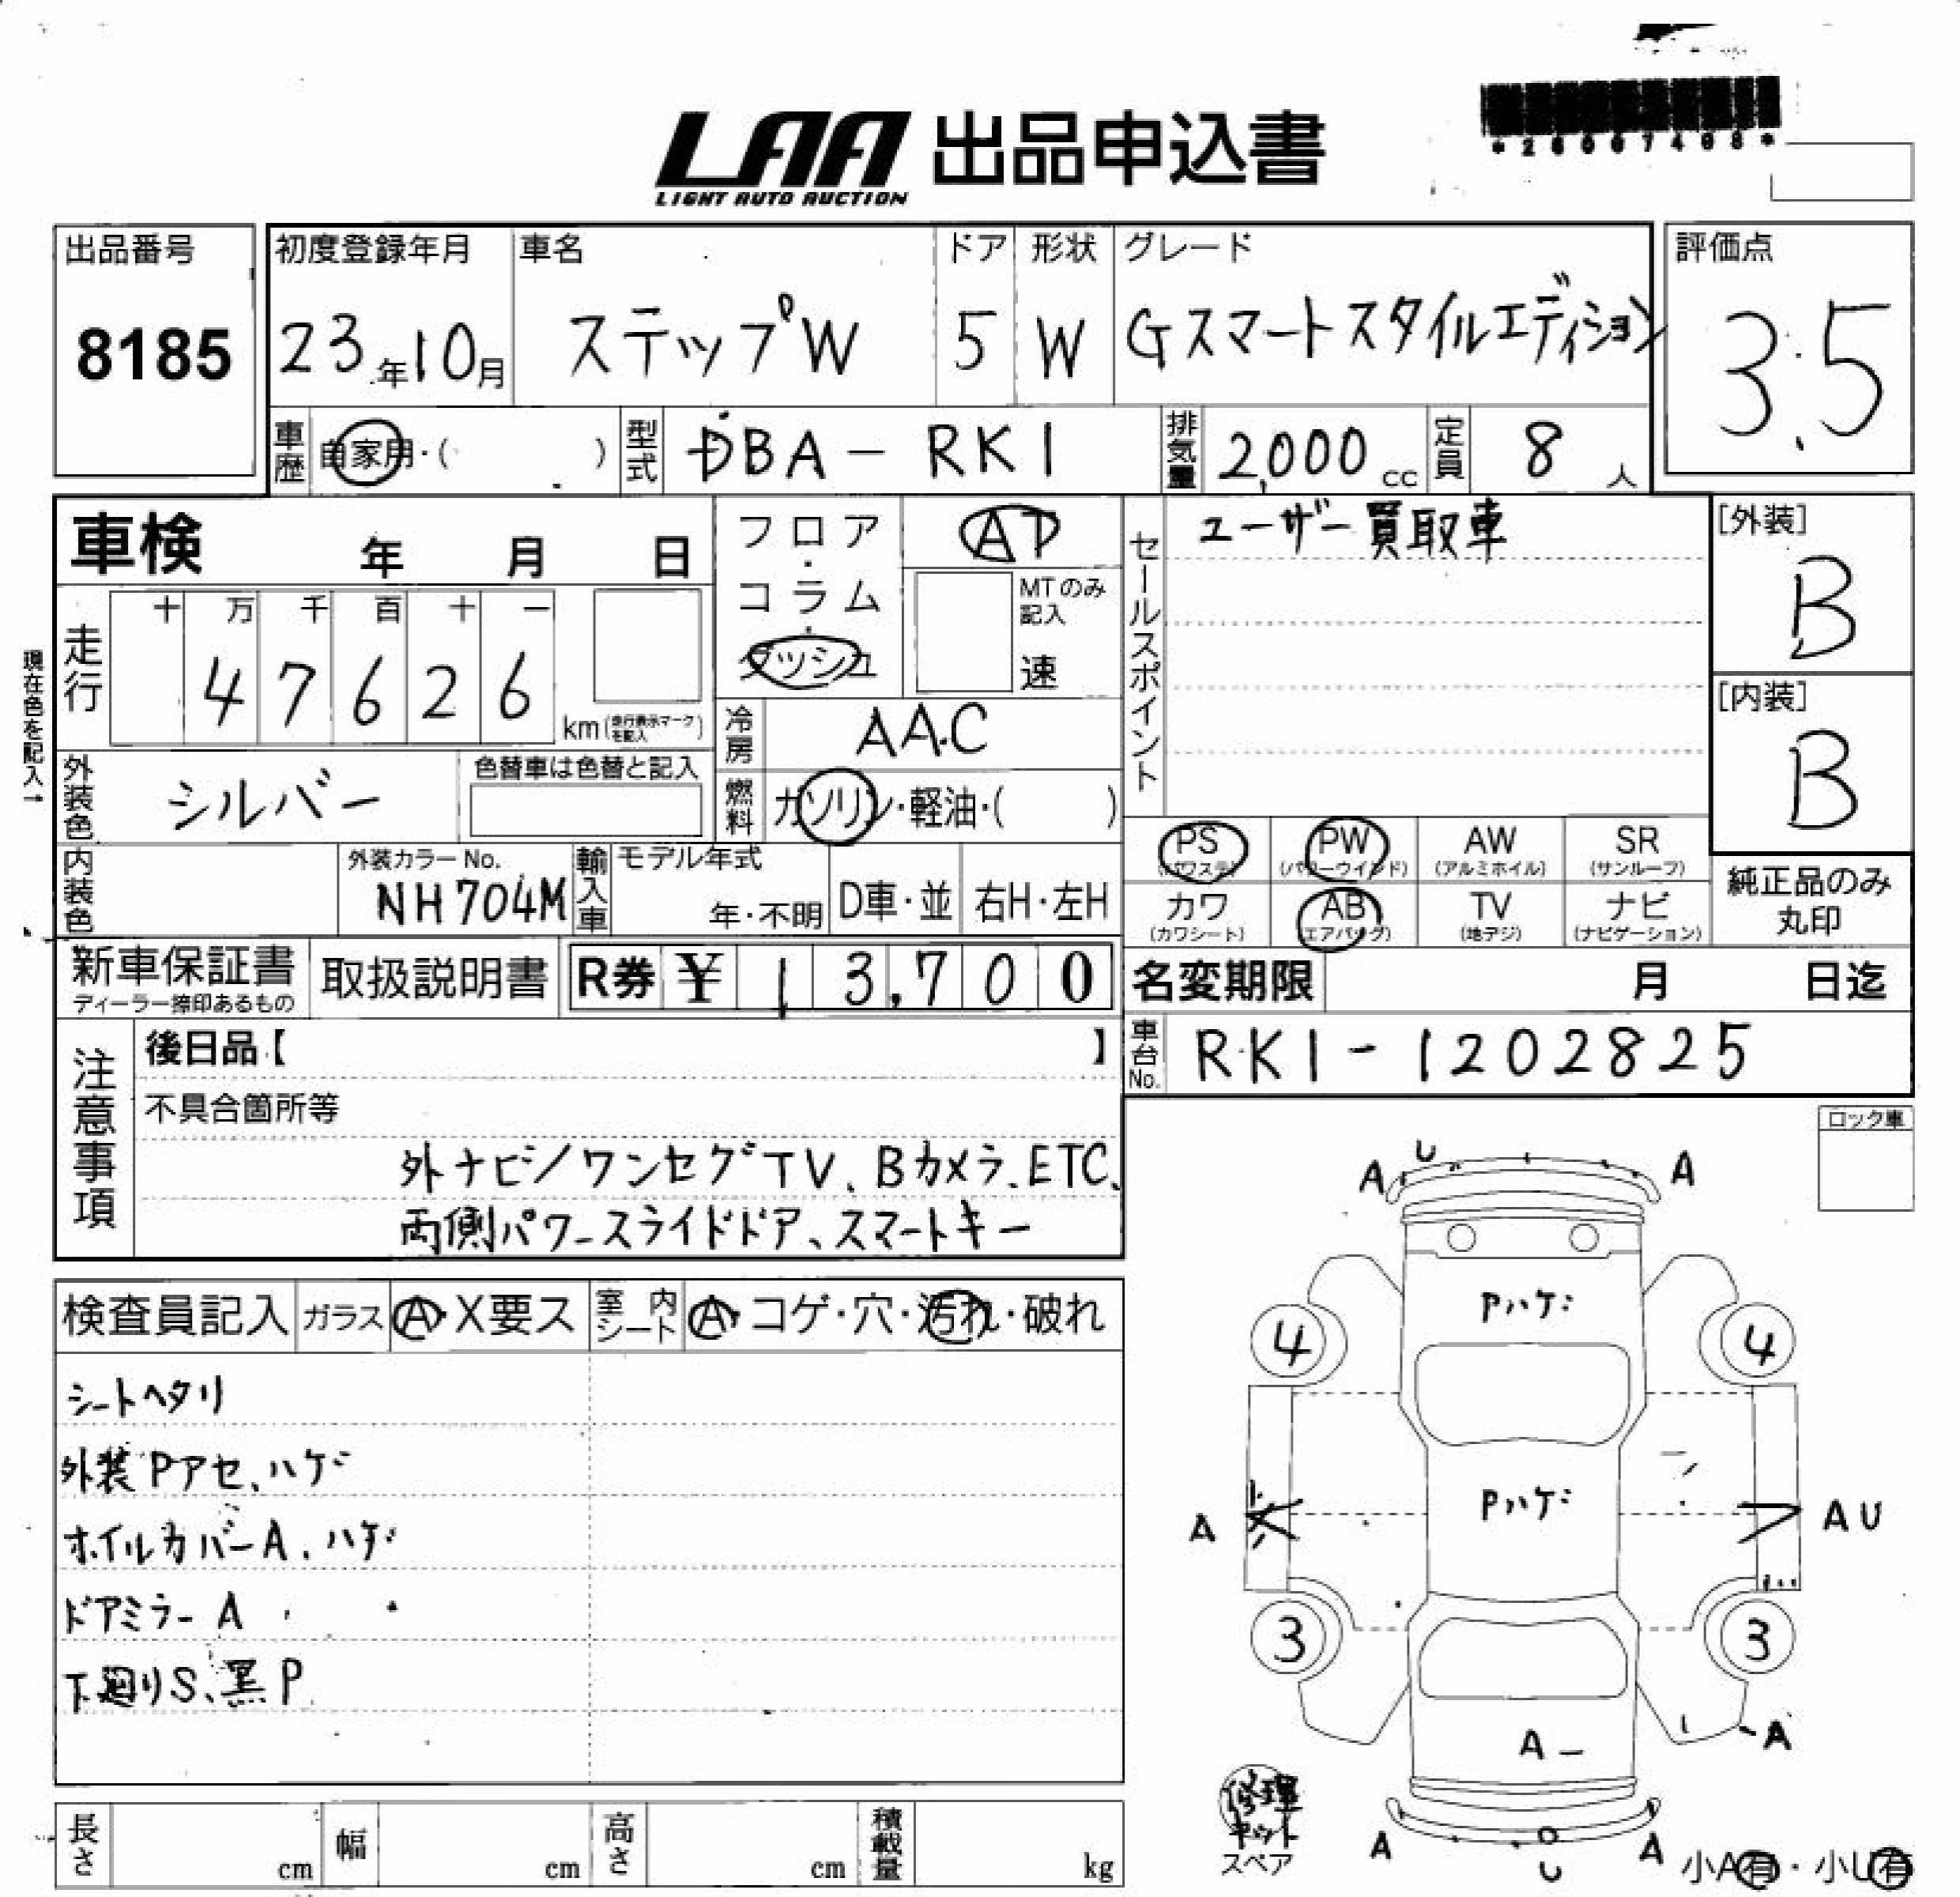 LAA 出品申込書
LIGHT AUTO AUCTION
*26007408*
出品番号
8185
初度登録年月
23年10月
車名
ステップW
ドア
5
形状
W
グレード
Gスマートスタイルエディション
評価点
3.5
車歴 自家用・( )
型式 DBA-RK1
排気量 2,000cc
定員 8人
車検 年 月 日
フロア・コラム・ダッシュ
AT
MTのみ記入
速
セールスポイント
ユーザー買取車
[外装]
B
[内装]
B
現在色を記入→
走行
十 万 千 百 十 一
4 7 6 2 6 km(走行表示マークを記入)
冷房 AAC
燃料 ガソリン・軽油・( )
外装色 シルバー
色替車は色替と記入
内装色
外装カラーNo.
NH704M
輸入車
モデル年式
年・不明
D車・並
右H・左H
PS (パワステ)
PW (パワーウインド)
AW (アルミホイル)
SR (サンルーフ)
カワ (カワシート)
AB (エアバッグ)
TV (地デジ)
ナビ (ナビゲーション)
純正品のみ
丸印
新車保証書
ディーラー捺印あるもの
取扱説明書
R券 ¥ 13,700
名変期限 月 日迄
車台No. RK1-1202825
注意事項
後日品【 】
不具合箇所等
外ナビ/ワンセグTV、Bカメラ、ETC、
両側パワースライドドア、スマートキー
ロック車
検査員記入
ガラス A・X要ス
室内シート A・コゲ・穴・汚れ・破れ
シートヘタリ
外装Pアセ、ハゲ
ホイルカバーA、ハゲ
ドアミラーA
下廻りS、黒P
長さ cm
幅 cm
高さ cm
積載量 kg
A U A
Pハゲ
4 4
Pハゲ
A AU
3 3
A
A
修理キット
スペア
A U A
小A有・小U有